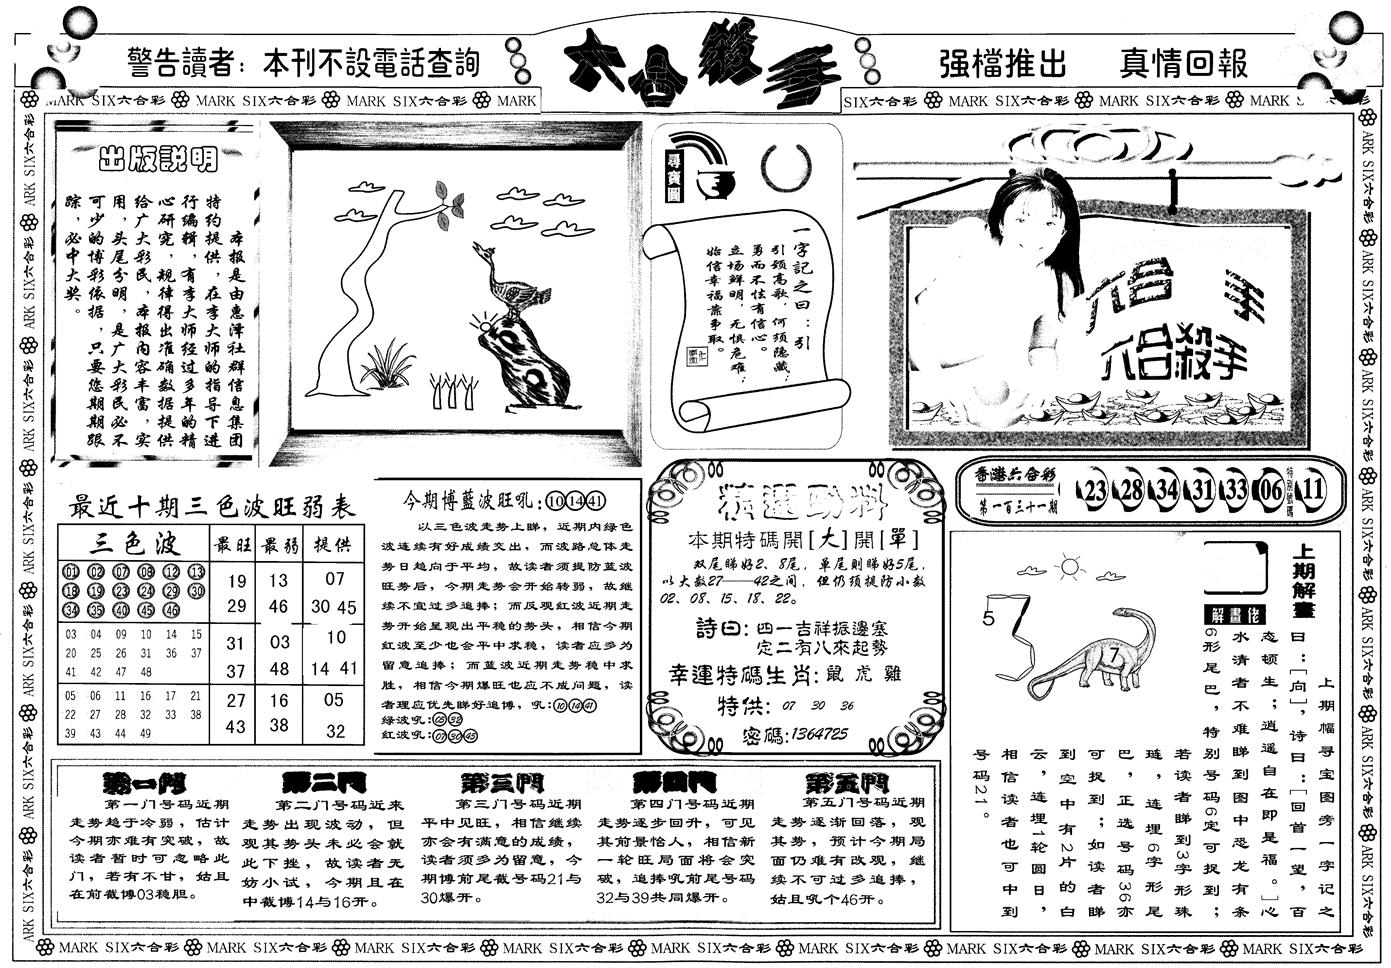 警告讀者：本刊不設電話查詢
六合殺手
强檔推出 真情回報
MARK SIX六合彩 MARK SIX六合彩 MARK SIX六合彩 MARK
SIX六合彩 MARK SIX六合彩 MARK SIX六合彩 MARK
出版説明
本报是由惠泽社群信息集团
特约提供，在李大师的指导下进
行编辑，有李大师经过多年的精
心研究，规律得出准确数据提供
给广大彩民，本报内容丰富，实
用，头尾分明，是广大彩民必不
可少的博彩依据，只要您期期跟
踪，必中大奖。
尋寶圖
一字記之曰：引
引颈高歌，何须隐藏；
勇而不怯有信心。
立场鲜明，无惧危难；
始信幸福靠争取。
六合 手
六合殺手
香港六合彩
第一百三十一期
23 28 34 31 33 06 特别號碼 11
最近十期三色波旺弱表
三色波 最旺 最弱 提供
01 02 07 08 12 13
18 19 23 24 29 30
34 35 40 45 46
19 13 07
29 46 30 45
03 04 09 10 14 15
20 25 26 31 36 37
41 42 47 48
31 03 10
37 48 14 41
05 06 11 16 17 21
22 27 28 32 33 38
39 43 44 49
27 16 05
43 38 32
今期博藍波旺吼:10 14 41
以三色波走势上睇，近期内绿色
波连续有好成绩交出，而波路总体走
势日趋向于平均，故读者须提防蓝波
旺势后，今期走势会开始转弱，故继
续不宜过多追捧；而反观红波近期走
势开始呈现出平稳的势头，相信今期
红波至少也会平中求稳，读者应多为
留意追捧；而蓝波近期走势稳中求
胜，相信今期爆旺也应不成问题，读
者理应优先睇好追博，吼:10 14 41
绿波吼:05 32
红波吼:07 30 45
精選動料
本期特碼開[大]開[單]
双尾睇好2、8尾，单尾则睇好5尾，
以大数27——42之间，但仍须提防小数
02、08、15、18、22。
詩曰：四一吉祥振邊塞
定二有八來起勢
幸運特碼生肖：鼠 虎 雞
特供：07 30 36
密碼：1364725
5
7
上期解畫
解畫佬
上期幅寻宝图旁一字记之
曰：[向]，诗曰：[回首一望，百
态顿生；逍遥自在即是福。]心
水清者不难睇到图中恐龙有条
6形尾巴，特别号码6定可捉到；
若读者睇到3字形珠
琏，连埋6字形尾
巴，正选号码36亦
可捉到；如读者睇
到空中有2片的白
云，连埋1轮圆日，
相信读者也可中到
号码21。
第一門
第一门号码近期
走势趋于冷弱，估计
今期亦难有突破，故
读者暂时可忽略此
门，若有不甘，姑且
在前截博03稳胆。
第二門
第二门号码近来
走势出现波动，但
观其势头未必会就
此下挫，故读者无
妨小试，今期且在
中截博14与16开。
第三門
第三门号码近期
平中见旺，相信继续
亦会有满意的成绩，
读者须多为留意，今
期博前尾截号码21与
30爆开。
第四門
第四门号码近期
走势逐步回升，可见
其前景怡人，相信新
一轮旺局面将会突
破，追捧吼前尾号码
32与39共同爆开。
第五門
第五门号码近期
走势逐渐回落，观
其势，预计今期局
面仍难有改观，继
续不可过多追捧，
姑且吼个46开。
MARK SIX六合彩 MARK SIX六合彩 MARK SIX六合彩 MARK SIX六合彩 MARK SIX六合彩 MARK SIX六合彩 MARK SIX六合彩 MARK SIX六合彩 MARK SIX六合彩